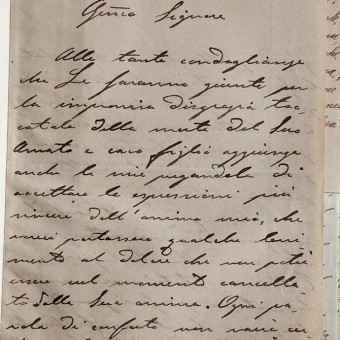 Gent.mo Signore
Alle tante condoglianze
che Le saranno giunte per
la improvisa disgrazia toc-
catale della morte del Suo
Amato e caro figlio aggiunga
anche le mie pregandola di
accettare le espressioni più
sincere dell'animo mio, che
portassero qualche leni
mento al dolore che non potrà
essere nel momento cancella
to dalla Sua anima. Ogni pa
rola di conforto non